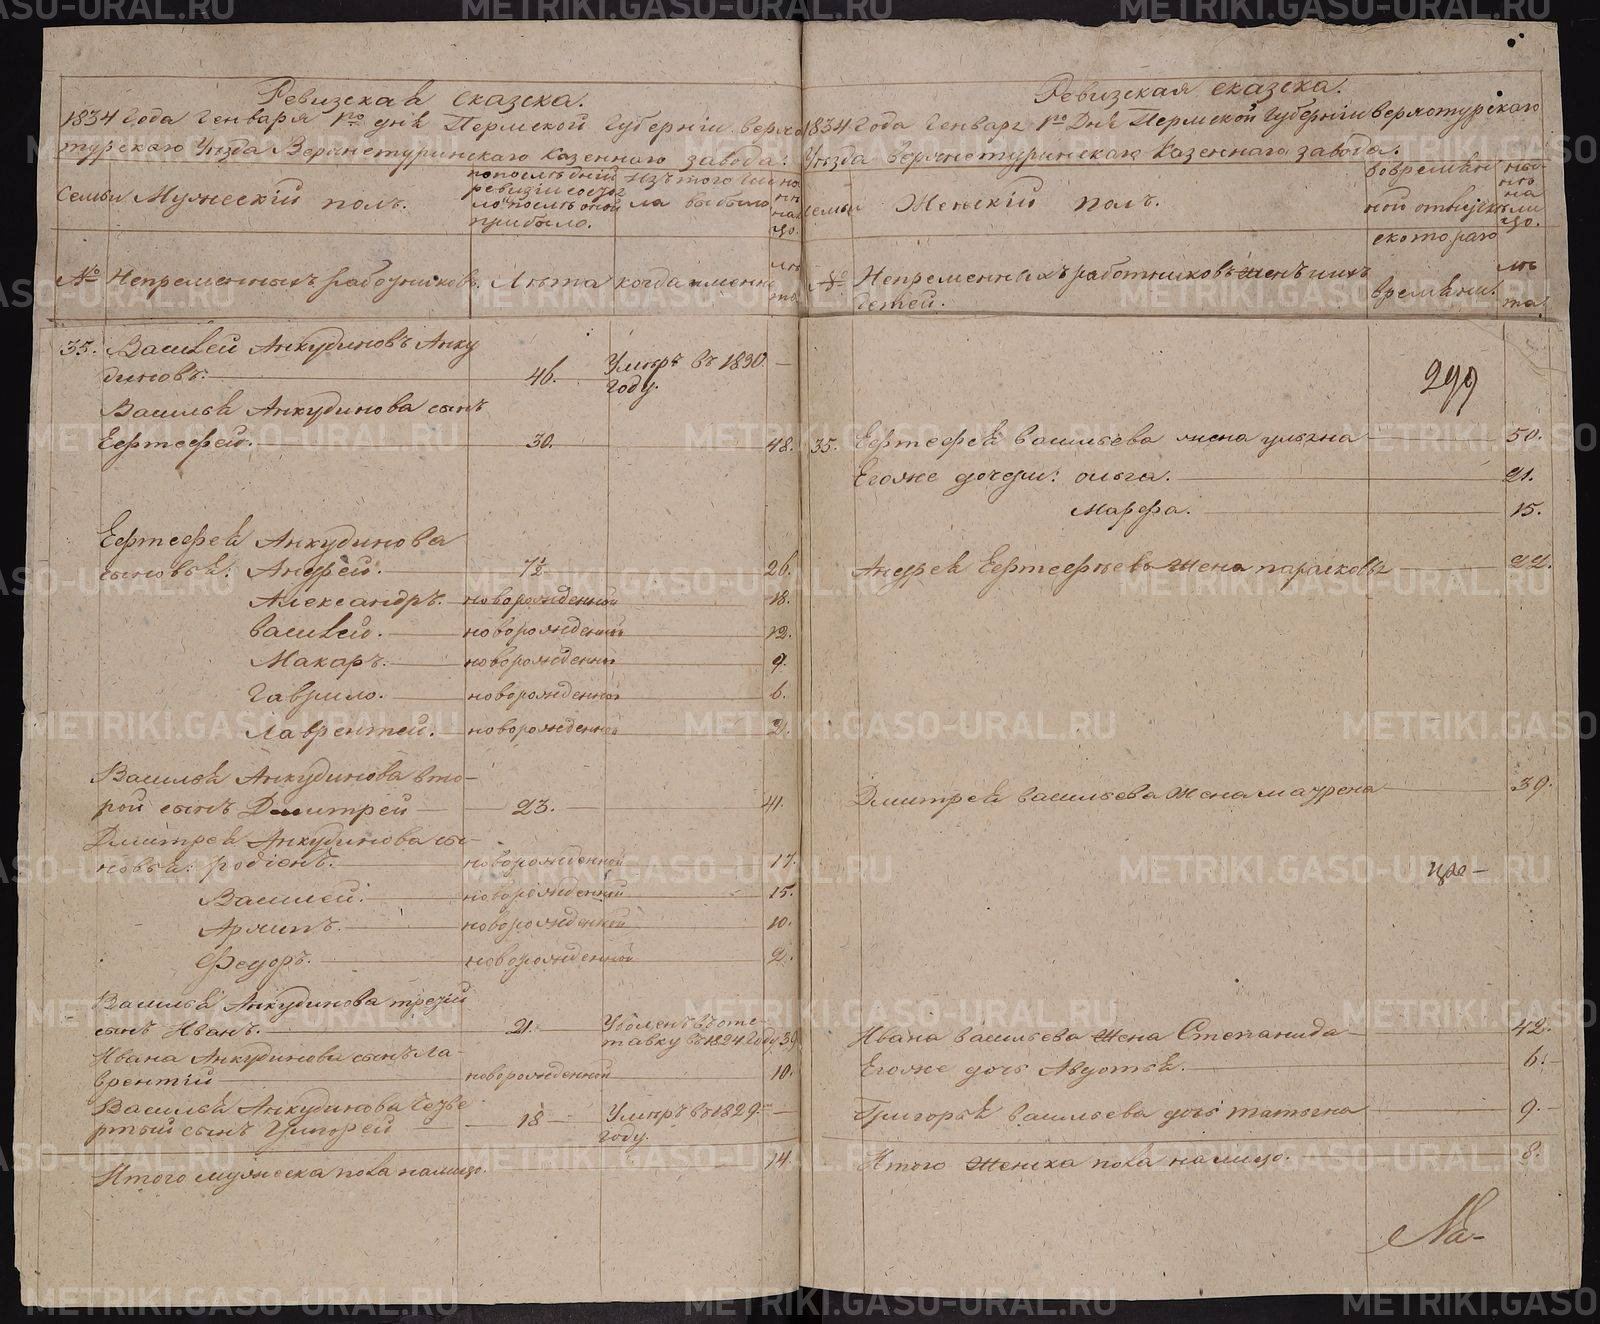 Ревизская сказска.
1834 Года Генваря 1го дня Пермской Губернии верхо
турскаго Уезда Верхнетуринскаго Казеннаго завода.
Семьи Мужеский полъ.
по последний
ревизии состоя
ло и после оной
прибыло.
Изъ того чис
ла выбыло
ны
не на
лицо.
№ Непременныхъ работниковъ. Лета когда имянно ле
та
35. Василей Анкудиновъ Анку
диновъ. 46. Умеръ въ 1830
году.
Василья Анкудинова сынъ
Ерфтефей. 30. 48.
Ерфтефея Анкудинова
сыновья: Андрей. 7½ 26.
Александръ. новорожденной 18.
Василей. новорожденной 12.
Макаръ. новорожденной 9.
Гаврило. новорожденной 6.
Лаврентей. новорожденной 2.
Василья Анкудинова вто-
рой сынъ Дмитрей 23. 41.
Дмитрея Анкудинова сы-
новья: Родионъ. новорожденной 17.
Василей. новорожденной 15.
Архипъ. новорожденной 10.
Федоръ. новорожденной 2.
Василья Анкудинова третий
сынъ Иванъ. 21. Уволенъ въ отс-
тавку въ 1824 Году 39
Ивана Анкудинова сынъ Ла-
врентий новорожденной 10.
Василья Анкудинова Четве
ртый сынъ Григорей 18 Умеръ въ 1829
году.
Итого мужеска пола налицо. 14.
Ревизская сказска.
1834 Года Генваря 1го Дня Пермской Губернии Верхотурскаго
Уезда Верхнетуринскаго Казеннаго завода.
Семьи Женский полъ.
Во времян
ной отлучке
с котораго
времяни.
ны
не
на
ли
цо.
ле
та.
№ Непременныхъ работниковъ жен и ихъ
детей.
299
35. Ерфтефея Васильева жена ульяна 50.
Его же дочери: ольга. 21.
Марфа. 15.
Андрея Ерфтефеева жена парасковья 22.
Дмитрея Васильева жена маурена 39.
Ивана Васильева жена Степанида 42.
Его же дочь Авдотья. 6.
Григорья Васильева дочь татьяна 9.
Итого женска пола налицо. 8.
На-
METRIKI.GASO-URAL.RU